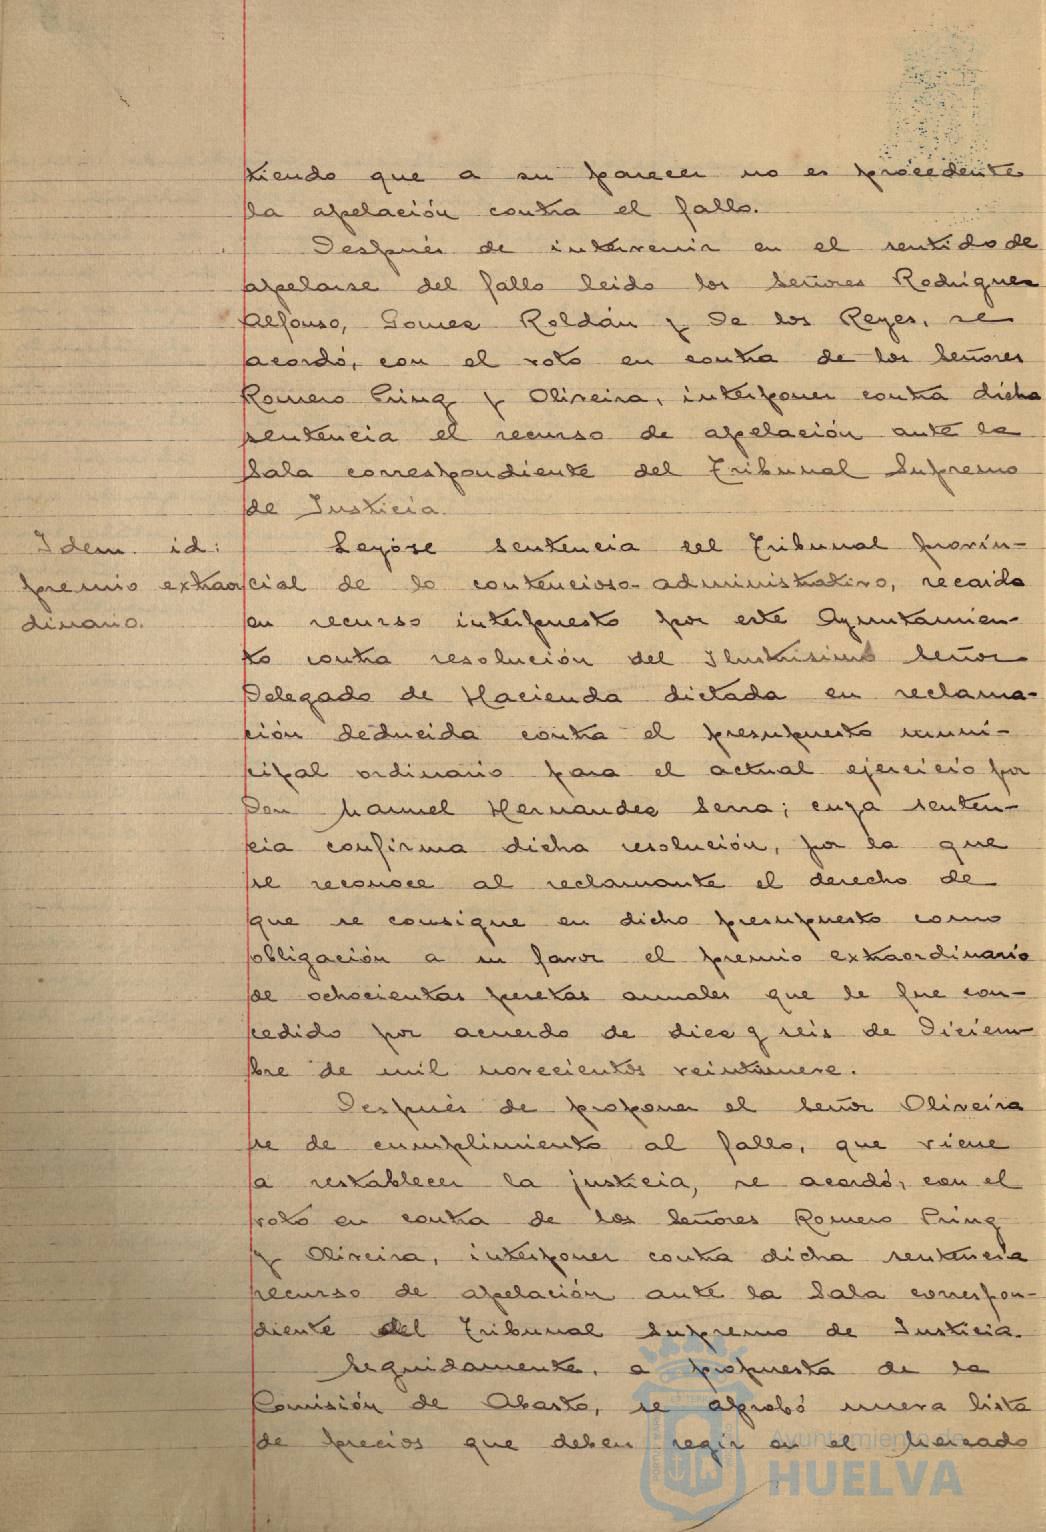 tiendo que a su parecer no es procedente
la apelación contra el fallo.
Después de intervenir en el sentido de
apelarse del fallo leido los Señores Rodríguez
Alfonso, Gomez Roldán y De los Reyes, se
acordó, con el voto en contra de los Señores
Romero Pring y Oliveira, interponer contra dicha
sentencia el recurso de apelación ante la
Sala correspondiente del Tribunal Supremo
de Justicia.
Idem. id:
premio extraor
dinario.
Leyóse sentencia del Tribunal provin-
cial de lo contencioso-administrativo, recaida
en recurso interpuesto por este Ayuntamien-
to contra resolución del Ilustrisimo Señor
Delegado de Hacienda dictada en reclama-
ción deducida contra el presupuesto muni-
cipal ordinario para el actual ejercicio por
Don Manuel Hernandez Serra; cuya senten-
cia confirma dicha resolución, por la que
se reconoce al reclamante el derecho de
que se consigne en dicho presupuesto como
obligación a su favor el premio extraordinario
de ochocientas pesetas anuales que le fue con-
cedido por acuerdo de diez y seis de Diciem
bre de mil novecientos veintinueve.
Después de proponer el Señor Oliveira
se de cumplimiento al fallo, que viene
a restablecer la justicia, se acordó, con el
voto en contra de los Señores Romero Pring
y Oliveira, interponer contra dicha sentencia
recurso de apelación ante la Sala correspon-
diente del Tribunal Supremo de Justicia.
Seguidamente, a propuesta de la
Comisión de Abasto, se aprobó nueva lista
de precios que deben regir en el Mercado
Ayuntamiento de
HUELVA